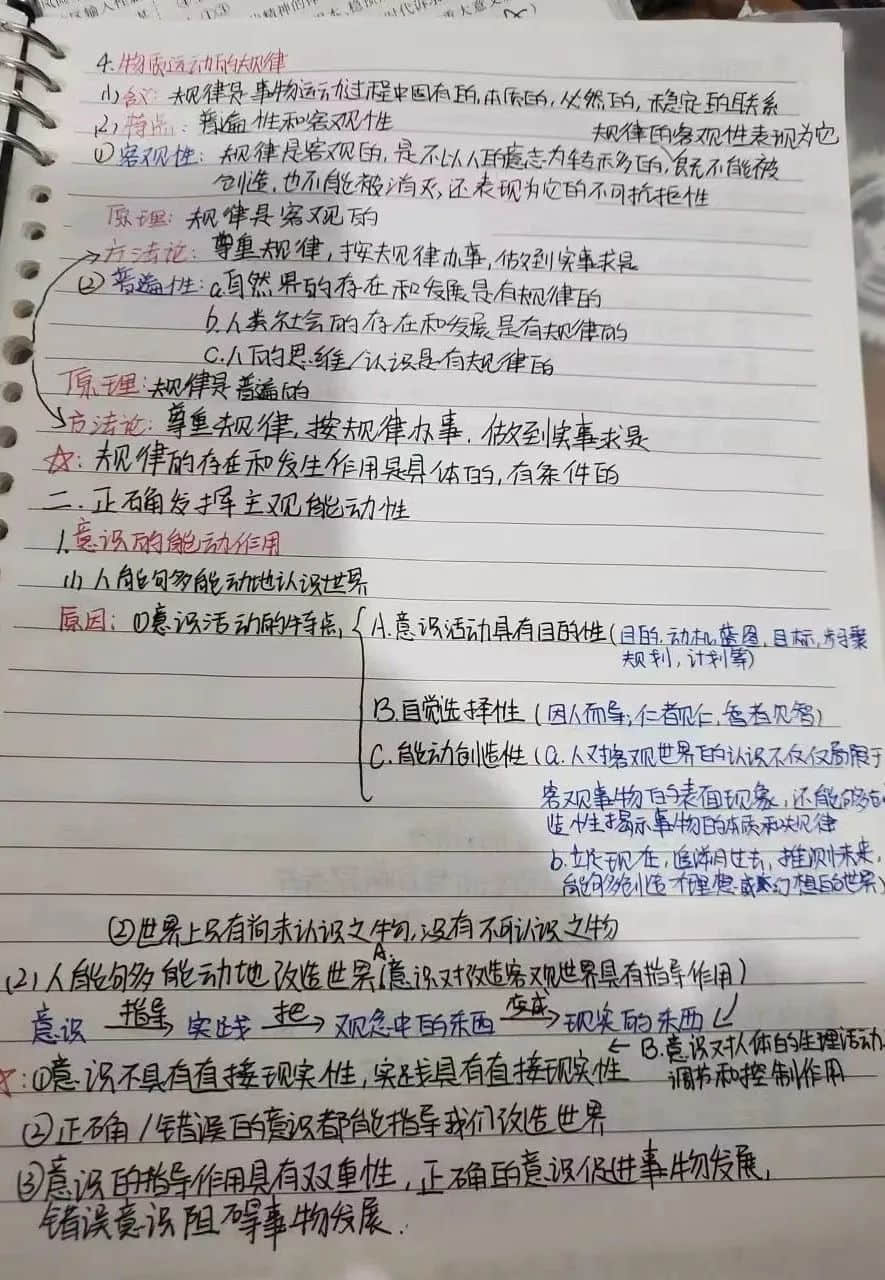 区输入程
精神的
时代诉求
大意义
4.物质运动的规律
(1)含义:规律是事物运动过程中固有的,本质的,必然的,稳定的联系
(2)特点:普遍性和客观性
规律的客观性表现为它
①客观性:规律是客观的,是不以人的意志为转移的,既不能被
创造,也不能被消灭,还表现为它的不可抗拒性
原理:规律是客观的
方法论:尊重规律,按规律办事,做到实事求是
②普遍性:a.自然界的存在和发展是有规律的
b.人类社会的存在和发展是有规律的
c.人的思维/认识是有规律的
原理:规律是普遍的
方法论:尊重规律,按规律办事,做到实事求是
☆:规律的存在和发生作用是具体的,有条件的
二.正确发挥主观能动性
1.意识的能动作用
(1)人能够能动地认识世界
原因:①意识活动的特点,{A.意识活动具有目的性(目的.动机,蓝图,目标,
规划,计划等)
B.自觉选择性(因人而异;仁者见仁,智者见智)
C.能动创造性(a.人对客观世界的认识不仅仅局限于
客观事物的表面现象,还能够创
造性揭示事物的本质和规律
b.立足现在,追溯过去,推测未来,
能够创造有理想或幻想的世界)
②世界上只有尚未认识之物,没有不可认识之物
(2)人能够能动地改造世界(A.意识对改造客观世界具有指导作用)
意识 指导→ 实践 把→ 观念中的东西 变成→ 现实的东西
← B.意识对人体的生理活动
调节和控制作用
☆:①意识不具有直接现实性,实践具有直接现实性
②正确/错误的意识都能指导我们改造世界
③意识的指导作用具有双重性,正确的意识促进事物发展,
错误意识阻碍事物发展.